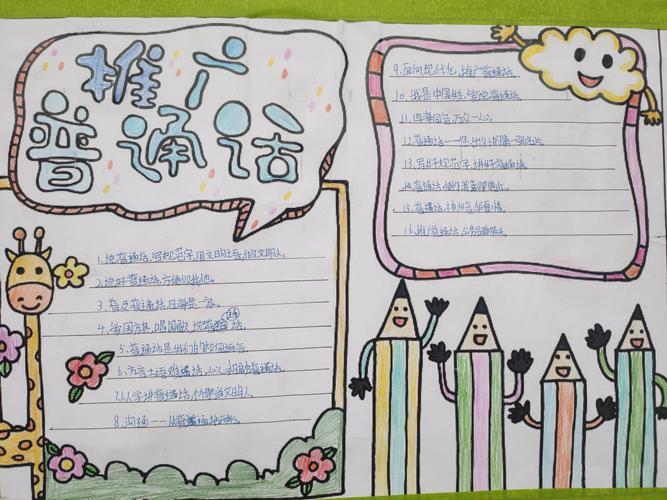 推广
普通话
1.说普通话,写规范字,用文明语,做文明人。
2.说好普通话,方便你我他。
3.普及普通话,四海是一家。
4.爱国旗,唱国歌,说普通话。
5.普通话是我们的校园语言。
6.方言土语难通话,心心相印普通话。
7.人人学讲普通话,个个争当文明人。
8.沟通——从普通话开始。
9.面向现代化,推广普通话。
10.我是中国娃,爱说普通话。
11.四海同音,万众一心。
12.普通话——你
13.写好规范字,讲好普通话。
14.普通话,使你我靠得更近。
15.普通话,神州音,华夏情。
16.推广普通话